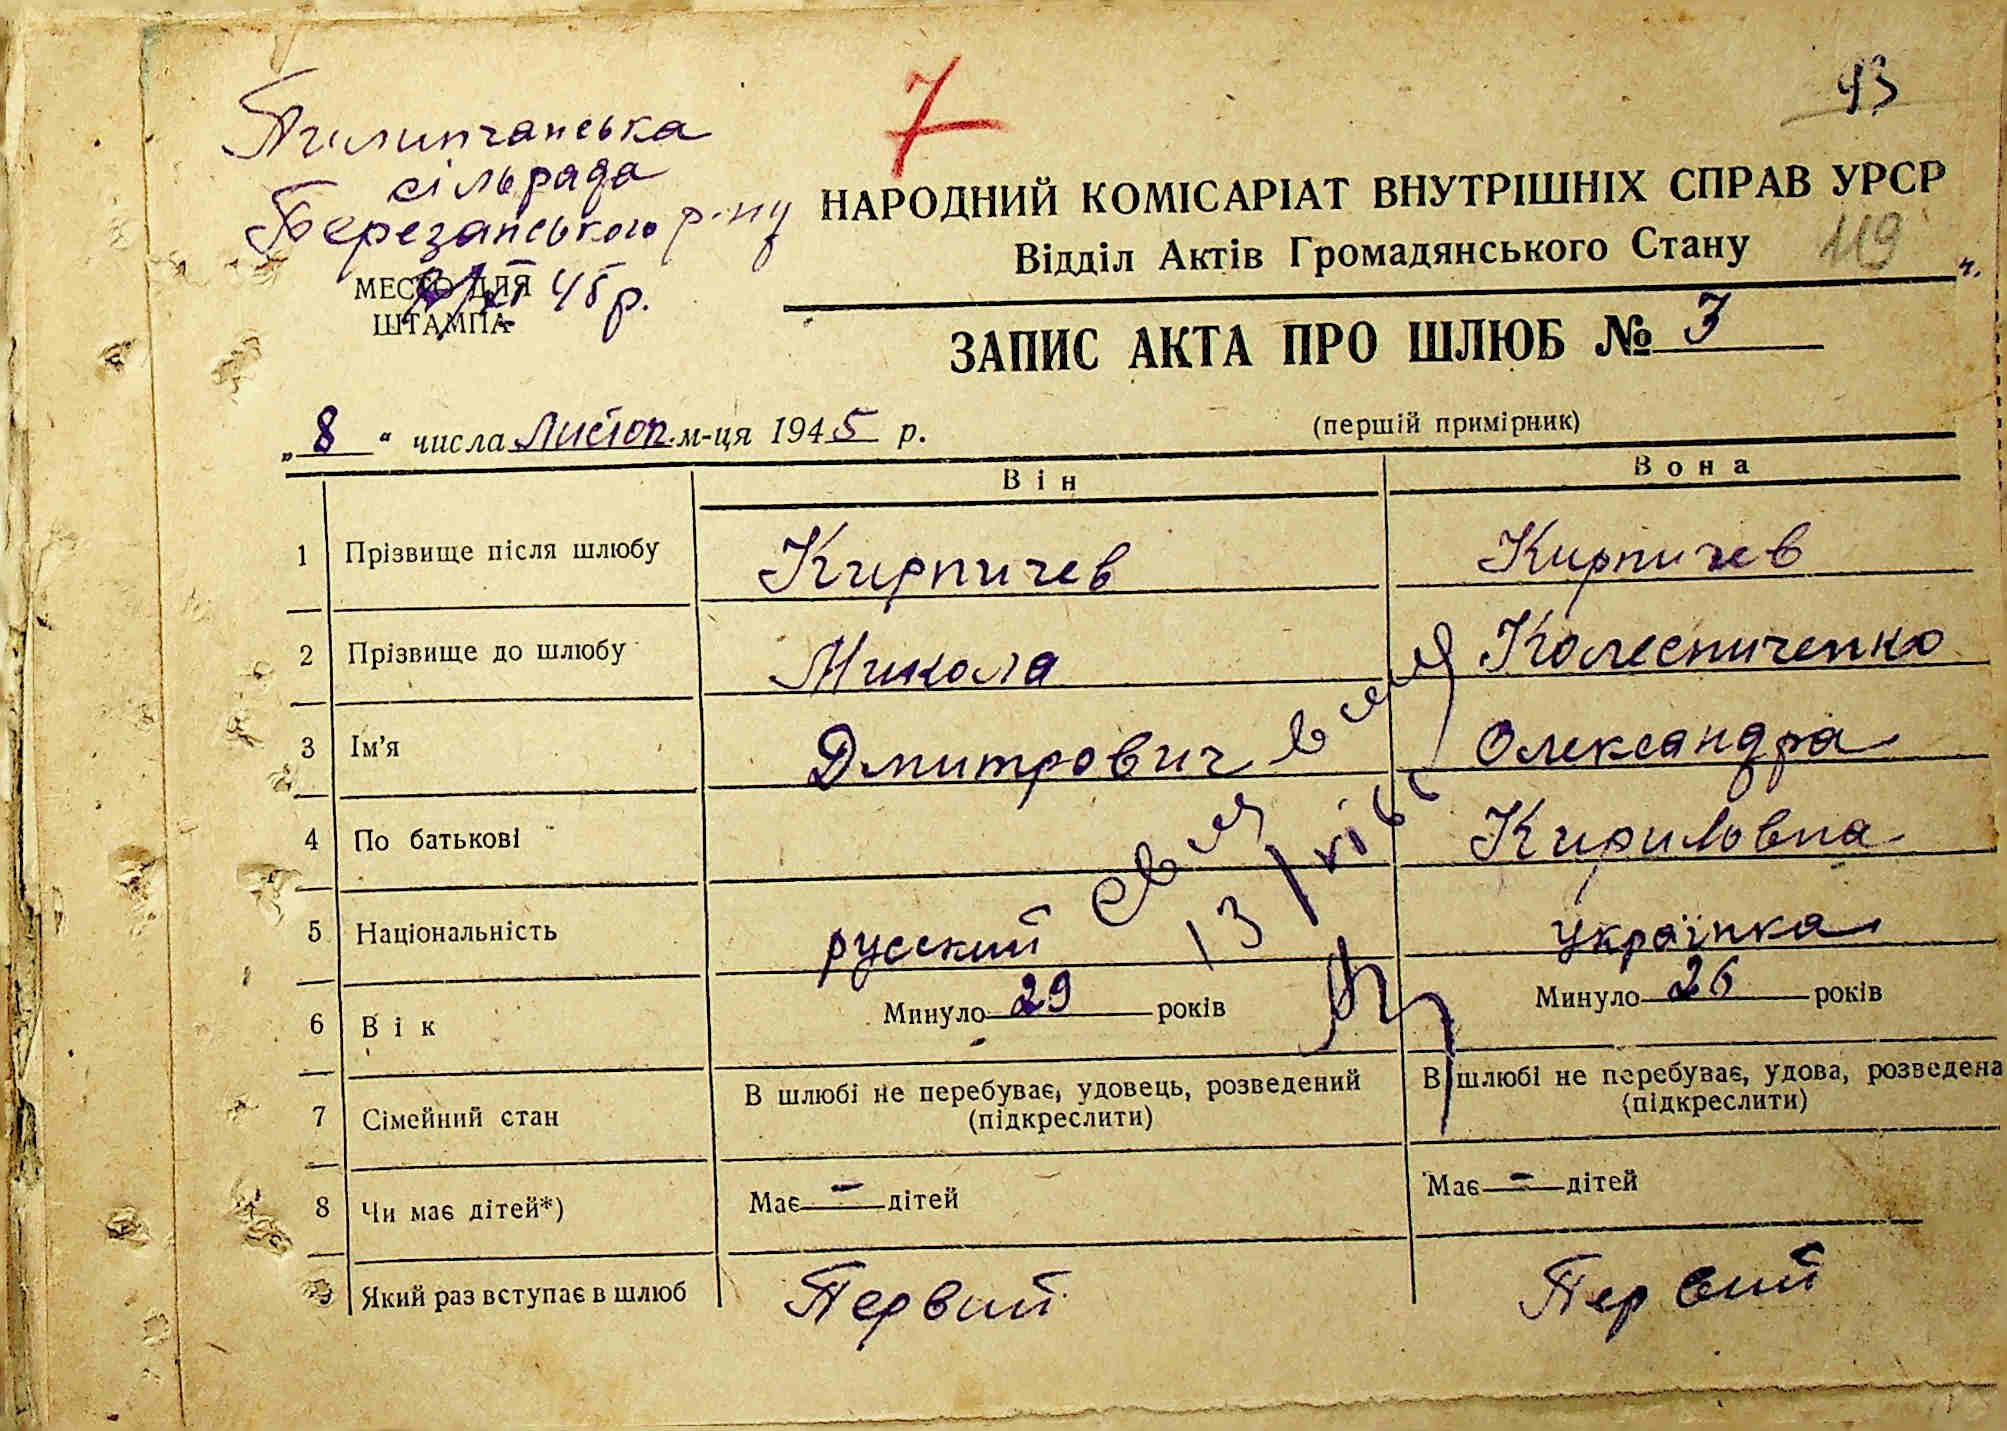 7
93
Пилипчанська
сільрада
Березанського р-ну
НАРОДНИЙ КОМІСАРІАТ ВНУТРІШНІХ СПРАВ УРСР
119
Відділ Актів Громадянського Стану
МЕСТО ДЛЯ
ШТАМПА
45 р.
ЗАПИС АКТА ПРО ШЛЮБ № 3
„ 8 “ числа Листоп. м-ця 1945 р.
(першій примірник)
Він Вона
1 Прізвище після шлюбу Кирпичев Кирпичев
2 Прізвище до шлюбу Микола Колесниченко
3 Ім'я Дмитрович Олександра
4 По батькові Кириловна
13/XI
5 Національність русский українка
6 Вік Минуло 29 років Минуло 26 років
7 Сімейний стан В шлюбі не перебуває, удовець, розведений (підкреслити) В шлюбі не перебуває, удова, розведена (підкреслити)
8 Чи має дітей*) Має - дітей Має - дітей
9 Який раз вступає в шлюб Первий Первий